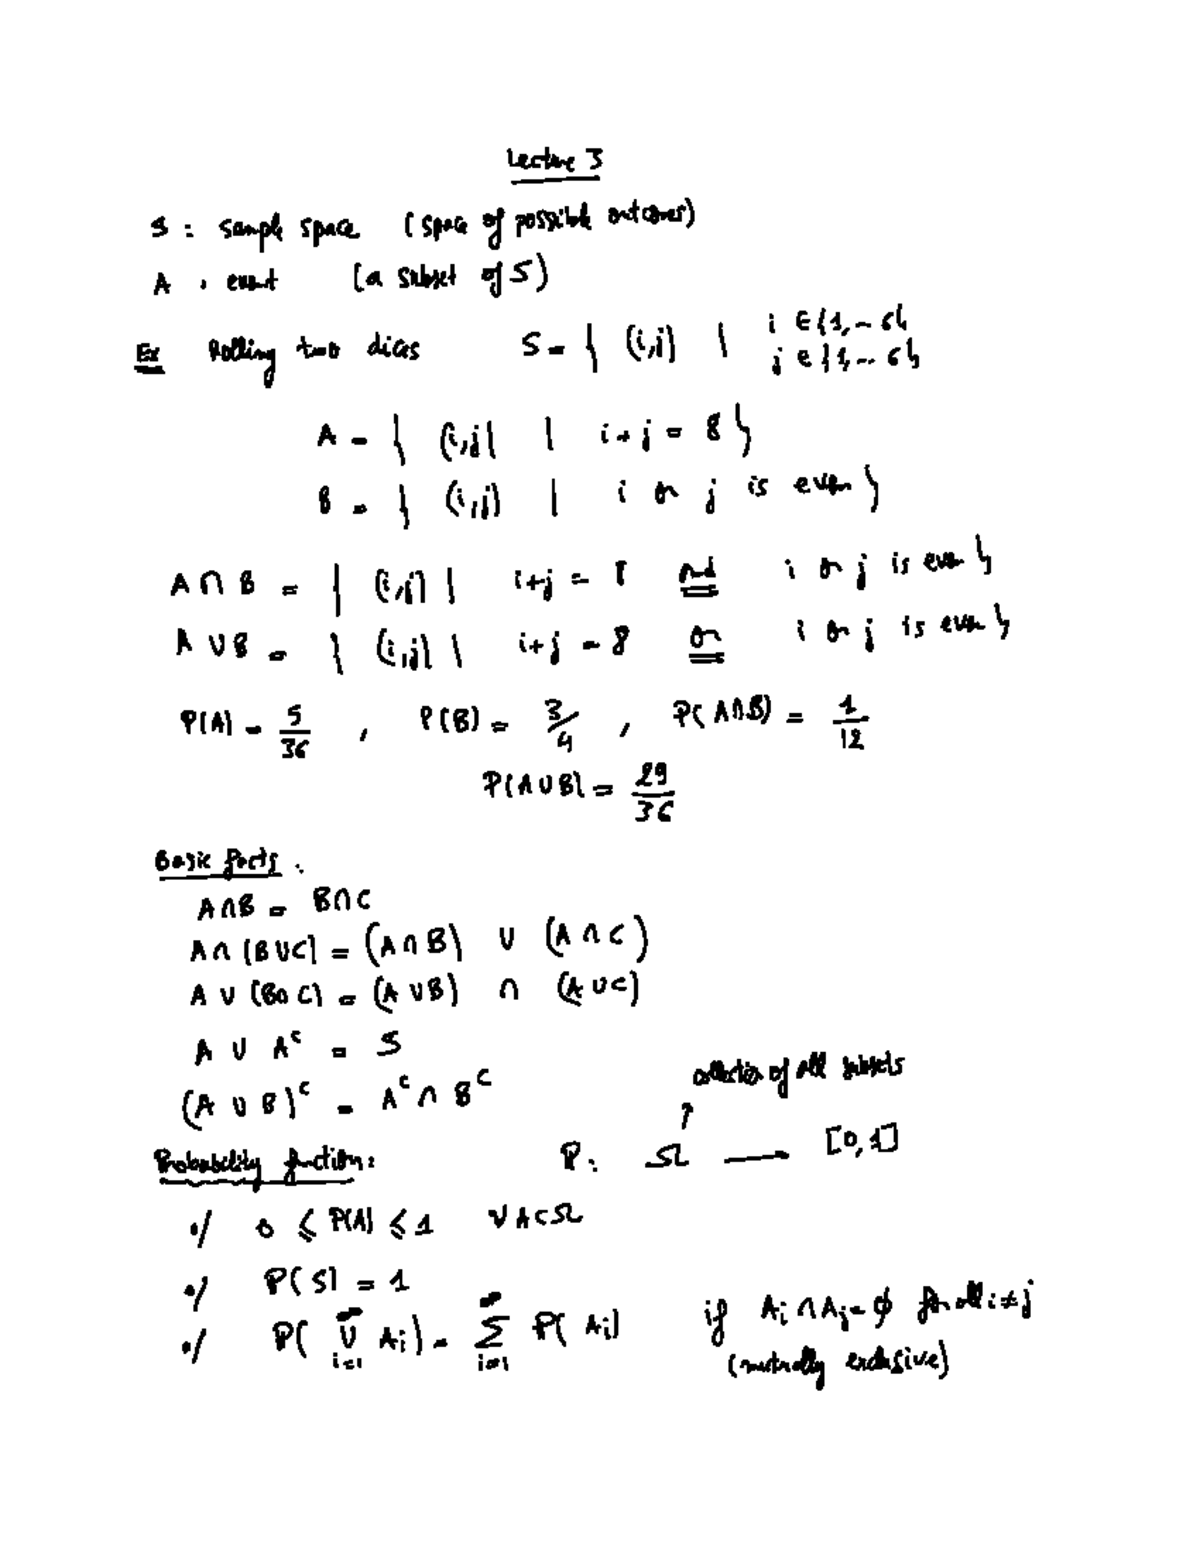 Lecture 3
S : sample space (space of possible outcomes)
A : event (a subset of S)
Ex Rolling two dices S = { (i,j) | i ∈ {1,.. 6}
j ∈ {1,.. 6}
A = { (i,j) | i + j = 8 }
B = { (i,j) | i or j is even }
A ∩ B = { (i,j) | i+j = 8 and i or j is even }
A ∪ B = { (i,j) | i+j = 8 or i or j is even }
P(A) = 5/36 , P(B) = 3/4 , P(A∩B) = 1/12
P(A∪B) = 29/36
Basic facts :
A∩B = B∩C
A∩(B∪C) = (A∩B) ∪ (A∩C)
A ∪ (B∩C) = (A∪B) ∩ (A∪C)
A ∪ A^c = S
(A ∪ B)^c = A^c ∩ B^c
collection of all subsets
↑
Probability function: P: Ω → [0,1]
•/ 0 ≤ P(A) ≤ 1 ∀ A⊂Ω
•/ P(S) = 1
•/ P( ∞∪i=1 Ai) = ∞∑i=1 P(Ai) if Ai ∩ Aj = ∅ for all i≠j
(mutually exclusive)